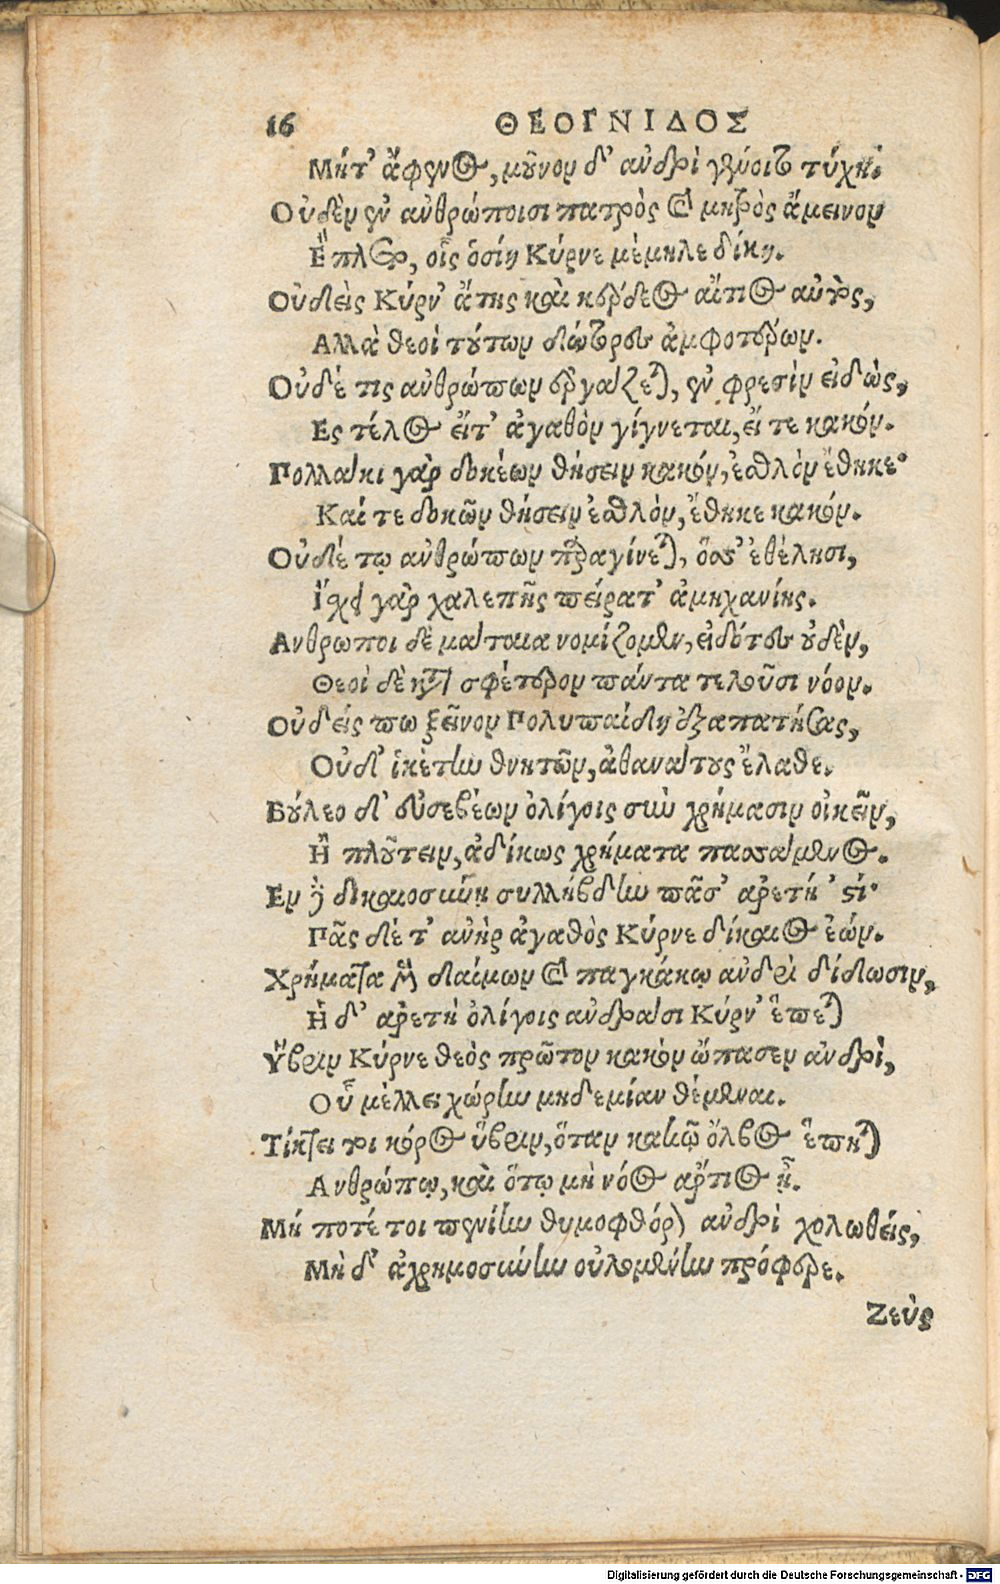 16 ΘΕΟΓΝΙΔΟΣ
Μήτ' ἄφενος, μοῦνον δ' ἀνδρὶ γένοιτο τύχη.
Οὐδὲν ἐν ἀνθρώποισι πατρὸς καὶ μητρὸς ἄμεινον
Ἔπλετο, οἷς ὁσίη Κύρνε μέμηλε δίκη.
Οὐδεὶς Κύρν' ἄτης καὶ κέρδεος αἴτιος αὐτὸς,
Ἀλλὰ θεοὶ τούτων δώτορες ἀμφοτέρων.
Οὐδέ τις ἀνθρώπων ἐργάζεται, ἐν φρεσὶν εἰδὼς,
Ες τέλος εἴτ' ἀγαθὸν γίγνεται, εἴ τε κακόν.
Πολλάκι γὰρ δοκέων θήσειν κακόν, ἐσθλὸν ἔθηκε·
Καί τε δοκῶν θήσειν ἐσθλὸν, ἔθηκε κακόν.
Οὐδέ τῳ ἀνθρώπων παραγίνεται, ὅσσ' ἐθέλησι,
Ἴσχει γὰρ χαλεπῆς πείρατ' ἀμηχανίης.
Ανθρωποι δὲ μάταια νομίζομεν, εἰδότες οὐδὲν,
Θεοὶ δὲ κατὰ σφέτερον πάντα τελοῦσι νόον.
Οὐδείς πω ξεῖνον Πολυπαίδη ἐξαπατήσας,
Οὐδ' ἱκέτην θνητῶν, ἀθανάτους ἔλαθε.
Βούλεο δ' εὐσεβέων ὀλίγοις σὺν χρήμασιν οἰκεῖν,
Ἢ πλούτειν, ἀδίκως χρήματα πασσάμενος.
Εν δὲ δικαιοσύνῃ συλλήβδην πᾶσ' ἀρετή 'στι·
Πᾶς δέ τ' ἀνὴρ ἀγαθὸς Κύρνε δίκαιος ἐών.
Χρήματα μὲν δαίμων καὶ παγκάκῳ ἀνδρὶ δίδωσιν,
Ἡ δ' ἀρετὴ ὀλίγοις ἀνδράσι Κύρν' ἕπεται
Ὕβριν Κύρνε θεὸς πρῶτον κακὸν ὤπασεν ἀνδρὶ,
Οὗ μέλλει χώρην μηδεμίαν θέμεναι.
Τίκτει τοι κόρος ὕβριν, ὅταν κακῷ ὄλβος ἕπηται
Ανθρώπῳ, καὶ ὅτῳ μὴ νόος ἄρτιος ᾖ.
Μή ποτέ τοι πενίην θυμοφθόρον ἀνδρὶ χολωθείς,
Μὴ δ' ἀχρημοσύνην οὐλομένην πρόφερε.
Ζεὺς
Digitalisierung gefördert durch die Deutsche Forschungsgemeinschaft - DFG